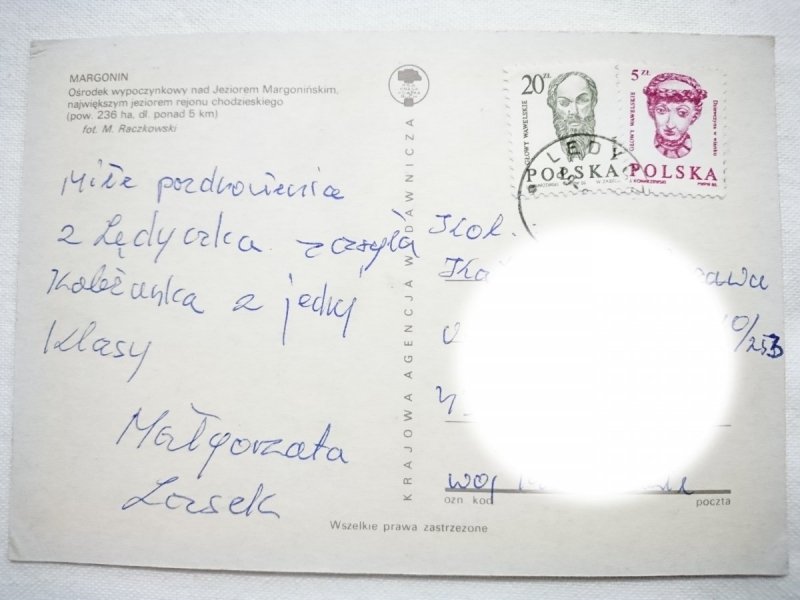 MARGONIN
Ośrodek wypoczynkowy nad Jeziorem Margonińskim,
największym jeziorem rejonu chodzieskiego
(pow. 236 ha, dł. ponad 5 km)
fot. M. Raczkowski
Miłe pozdrowienia
z Lędyczka zasyła
Koleżanka z jednej
klasy
Małgorzata
Lasek
KRAJOWA AGENCJA WYDAWNICZA
20 ZŁ
GŁOWY WAWELSKIE
POLSKA
5 ZŁ
GŁOWY WAWELSKIE
POLSKA
LĘDYC
Kol.
10/253
woj
ozn. kod
poczta
Wszelkie prawa zastrzeżone